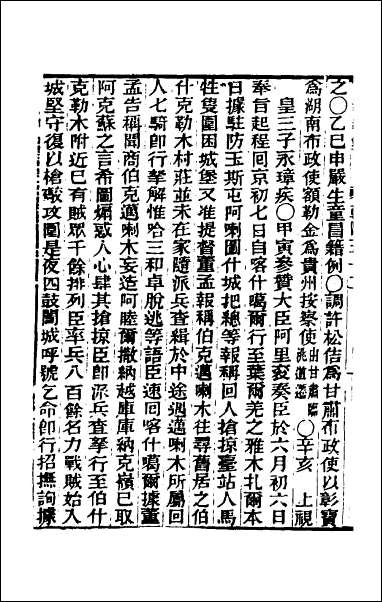 之〇乙巳申嚴生童冒籍例〇調許松佶爲甘肅布政使以彰寶
爲湖南布政使額勒金爲貴州按察使由甘肅臨洮道遷〇辛亥　上視
皇三子永璋疾〇甲寅參贊大臣阿里袞奏臣於六月初六日
奉旨起程囘京初七日自喀什噶爾行至葉爾羌之雅木扎爾本
日據駐防玉斯屯阿喇圖什城把總等報稱囘人搶掠臺站人馬
牲隻圍困城堡又准提督董孟報稱伯克邁喇木往尋舊居之伯
什克勒木村莊並未在家隨派兵查緝於中途遇邁喇木所屬囘
人七騎卽行拏解惟哈三和卓脫逃等語臣速囘喀什噶爾據董
孟告稱聞商伯克邁喇木妄造阿睦爾撒納越庫庫納克嶺已取
阿克蘇之言希圖煽惑人心肆其搶掠臣卽派兵查拏行至伯什
克勒木附近已有賊眾千餘排列臣率兵八百餘名力戰賊始入
城堅守復以槍礮攻圍是夜四鼓闔城呼號乞命卽行招撫詢據